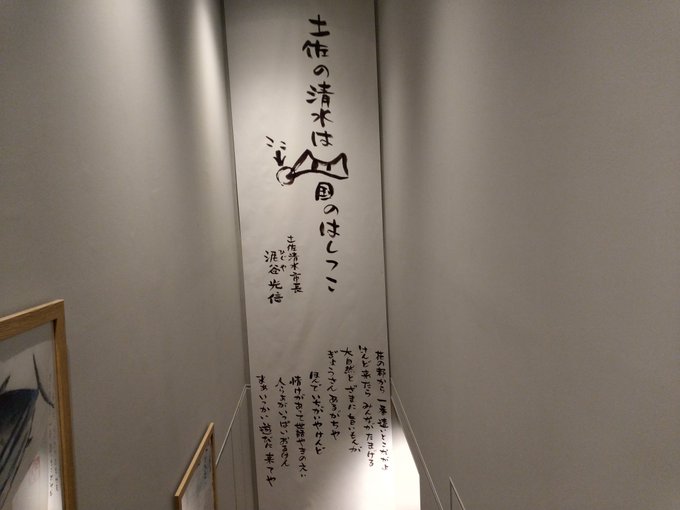 土佐の清水は四国のはしっこ
ここ
土佐清水市長
ひじや
泥谷光信
花の都から 一番遠いとこだがよ
けんど来たら みんながたまげる
大自然と ざまに旨いもんが
ぎょうさんあるがぢゃ
ほんで いなかぢゃけんど
情けが 世話やきの
いっぱいおるけん
まぁいっかい遊びに来てや